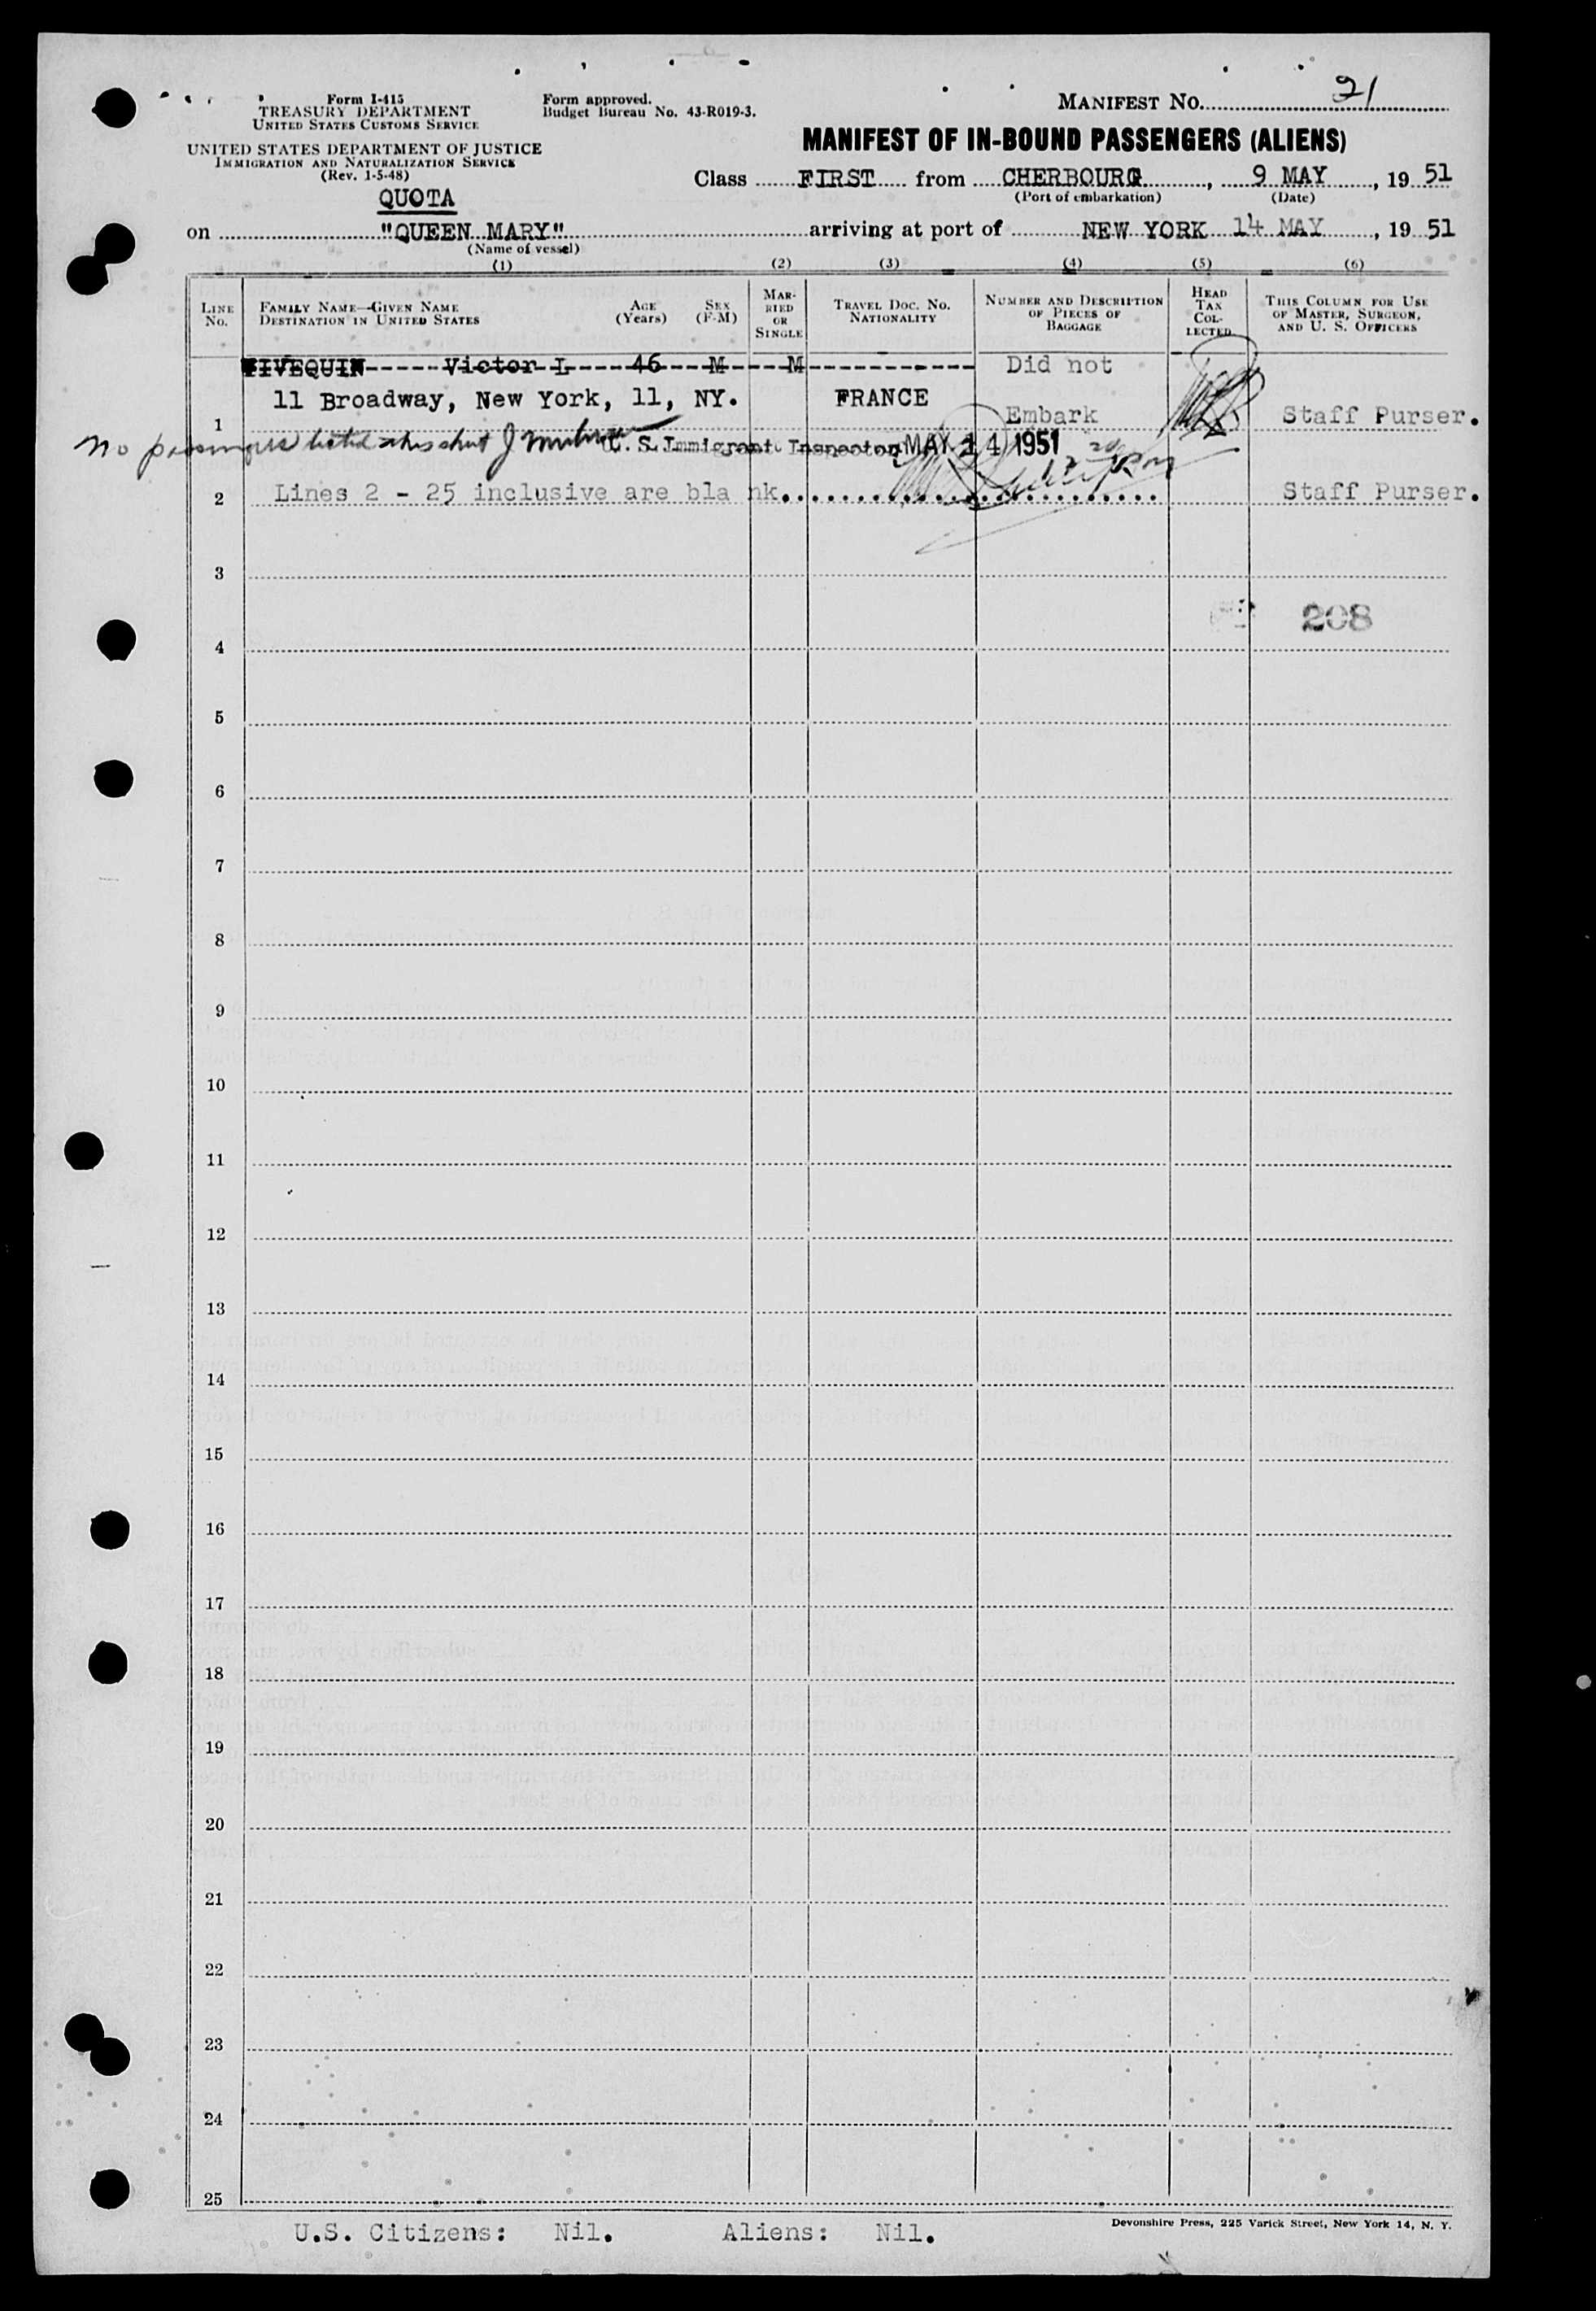 Form I-415
TREASURY DEPARTMENT
UNITED STATES CUSTOMS SERVICE
UNITED STATES DEPARTMENT OF JUSTICE
IMMIGRATION AND NATURALIZATION SERVICE
(Rev. 1-5-48)
Form approved.
Budget Bureau No. 43-R019-3.
MANIFEST NO. 21
MANIFEST OF IN-BOUND PASSENGERS (ALIENS)
Class FIRST from CHERBOURG, 9 MAY, 19 51
(Port of embarkation) (Date)
QUOTA
on "QUEEN MARY" arriving at port of NEW YORK 14 MAY, 19 51
(Name of vessel)
(1) (2) (3) (4) (5) (6)
LINE NO.
FAMILY NAME—GIVEN NAME
DESTINATION IN UNITED STATES
AGE (Years)
SEX (F-M)
MARRIED OR SINGLE
TRAVEL DOC. NO.
NATIONALITY
NUMBER AND DESCRIPTION OF PIECES OF BAGGAGE
HEAD TAX COLLECTED
THIS COLUMN FOR USE OF MASTER, SURGEON, AND U. S. OFFICERS
VIVEQUIN Victor L 46 M M Did not
11 Broadway, New York, 11, NY. FRANCE
1 Embark Staff Purser.
No passengers listed this sheet
U. S. Immigrant Inspector MAY 14 1951
2 Lines 2 - 25 inclusive are bla nk. Staff Purser.
3
208
4
5
6
7
8
9
10
11
12
13
14
15
16
17
18
19
20
21
22
23
24
25
U.S. Citizens: Nil. Aliens: Nil.
Devonshire Press, 225 Varick Street, New York 14, N. Y.